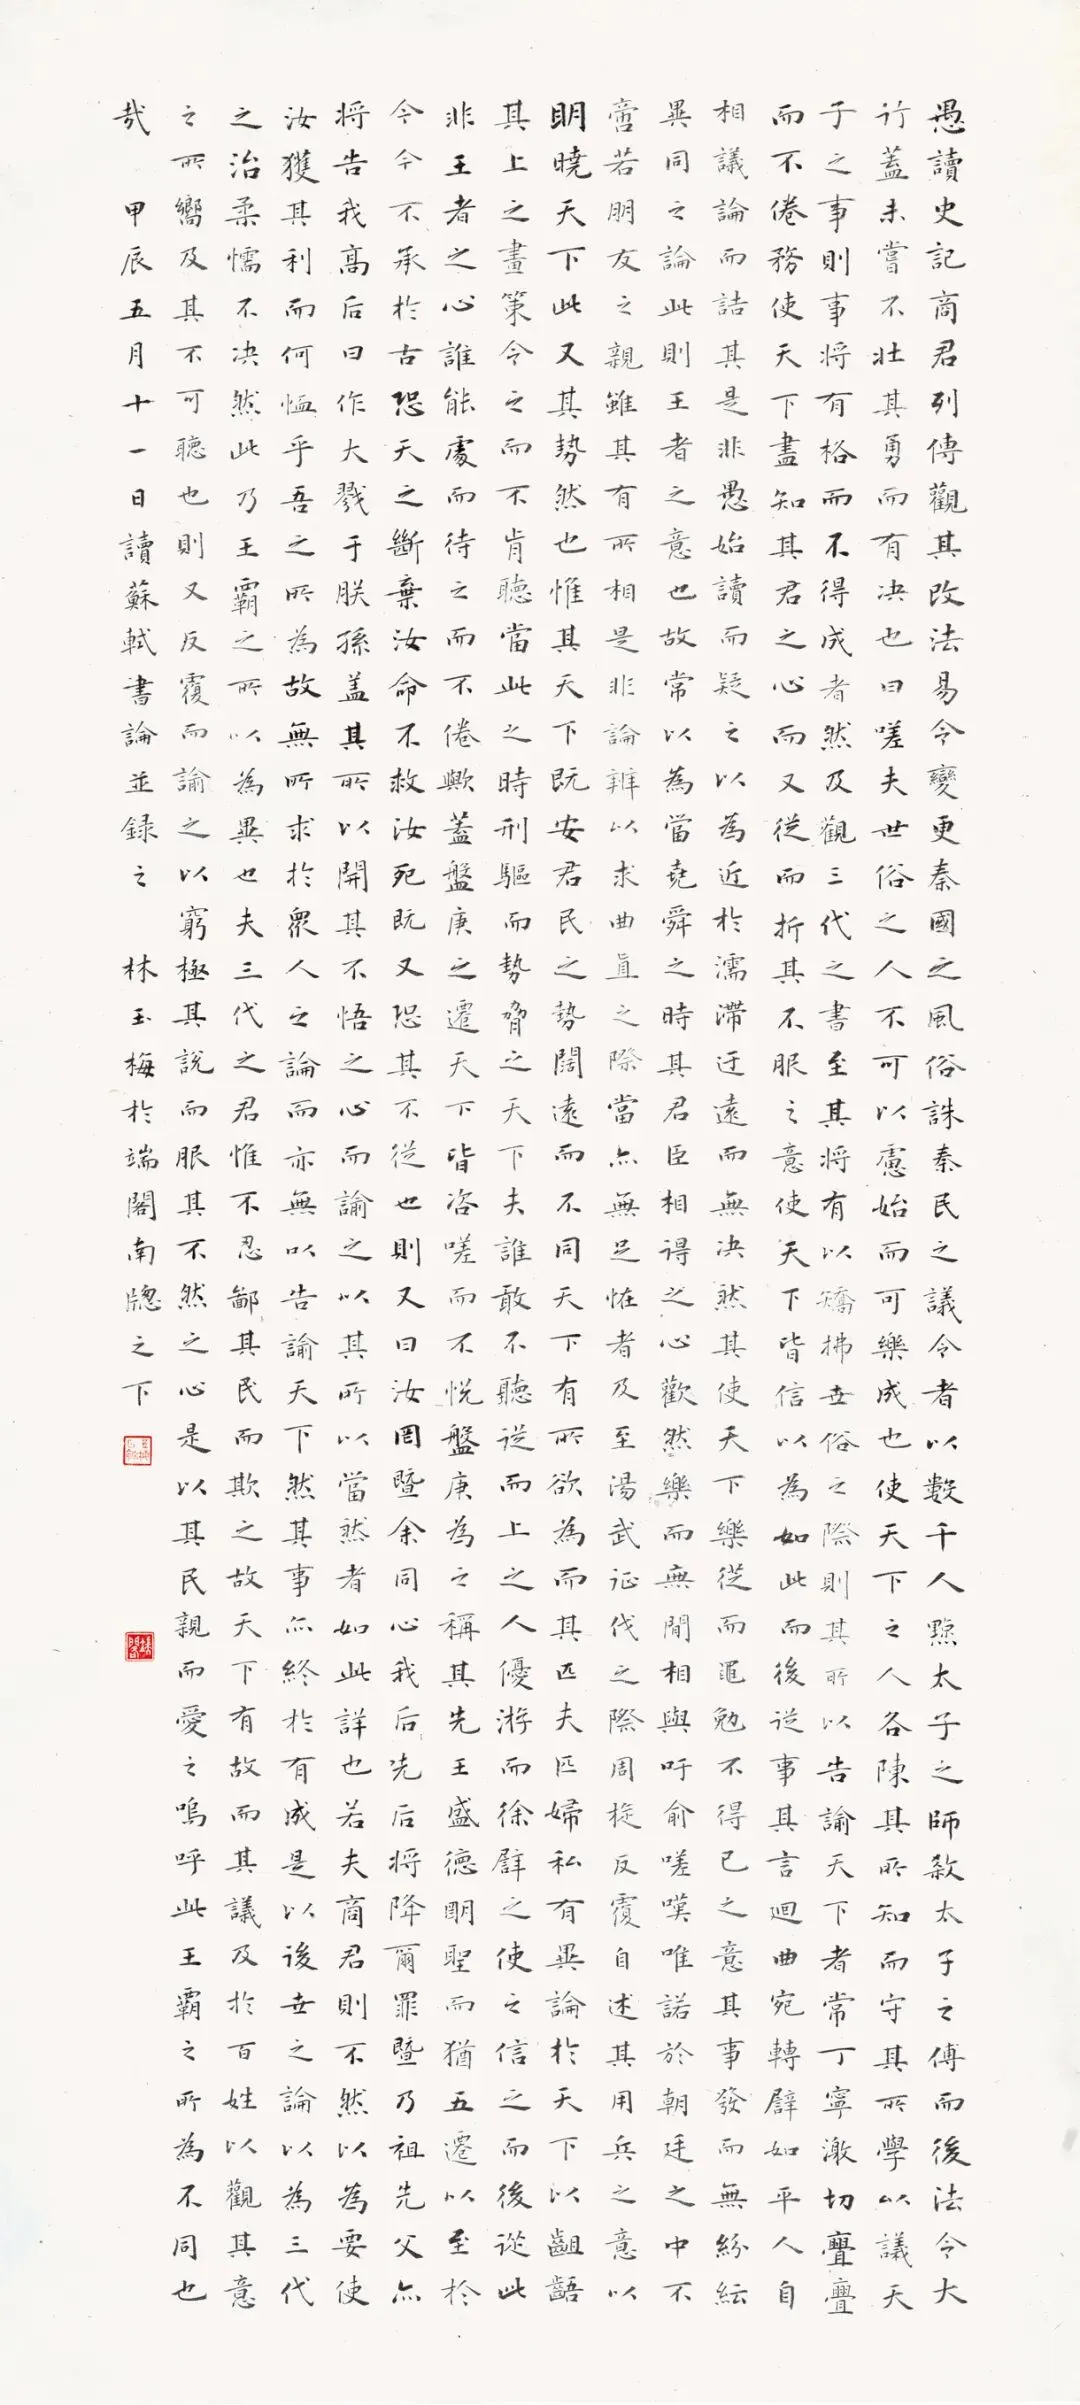 愚讀史記商君列傳觀其改法易令變更秦國之風俗誅秦民之議令者以數千人黥太子之師殺太子之傅而後法令大
行蓋未嘗不壯其勇而有决也曰嗟夫世俗之人不可以慮始而可樂成也使天下之人各陳其所知而守其所學以議天
子之事則事將有格而不得成者然及觀三代之書至其將有以矯拂世俗之際則其所以告諭天下者常丁寧激切亹亹
而不倦務使天下盡知其君之心而又從而折其不服之意使天下皆信以為如此而後從事其言迴曲宛轉譬如平人自
相議論而詰其是非愚始讀而疑之以為近於濡滯迂遠而無决然其使天下樂從而黽勉不得已之意其事發而無紛紜
異同之論此則王者之意也故常以為當堯舜之時其君臣相得之心歡然樂而無間相與吁俞嗟嘆唯諾於朝廷之中不
啻若朋友之親雖其有所相是非論辨以求曲直之際當亦無足怪者及至湯武征伐之際周旋反覆自述其用兵之意以
明曉天下此又其勢然也惟其天下既安君民之勢闊遠而不同天下有所欲為而其匹夫匹婦私有異論於天下以齟齬
其上之畫策令之而不肯聽當此之時刑驅而勢脅之天下夫誰敢不聽從而上之人優游而徐譬之使之信之而後從此
非王者之心誰能處而待之而不倦歟蓋盤庚之遷天下皆咨嗟而不悅盤庚為之稱其先王盛德明聖而猶五遷以至於
今今不承於古恐天之斷棄汝命不救汝死既又恐其不從也則又曰汝罔暨余同心我后先后將降爾罪暨乃祖先父亦
將告我高后曰作大戮于朕孫蓋其所以開其不悟之心而諭之以其所以當然者如此詳也若夫商君則不然以為要使
汝獲其利而何恤乎吾之所為故無所求於眾人之論而亦無以告諭天下然其事亦終於有成是以後世之論以為三代
之治柔懦不决然此乃王霸之所以為異也夫三代之君惟不忍鄙其民而欺之故天下有故而其議及於百姓以觀其意
之所嚮及其不可聽也則又反覆而諭之以窮極其說而服其不然之心是以其民親而愛之嗚呼此王霸之所為不同也
哉 甲辰五月十一日讀蘇軾書論並録之 林玉梅於端閣南牕之下